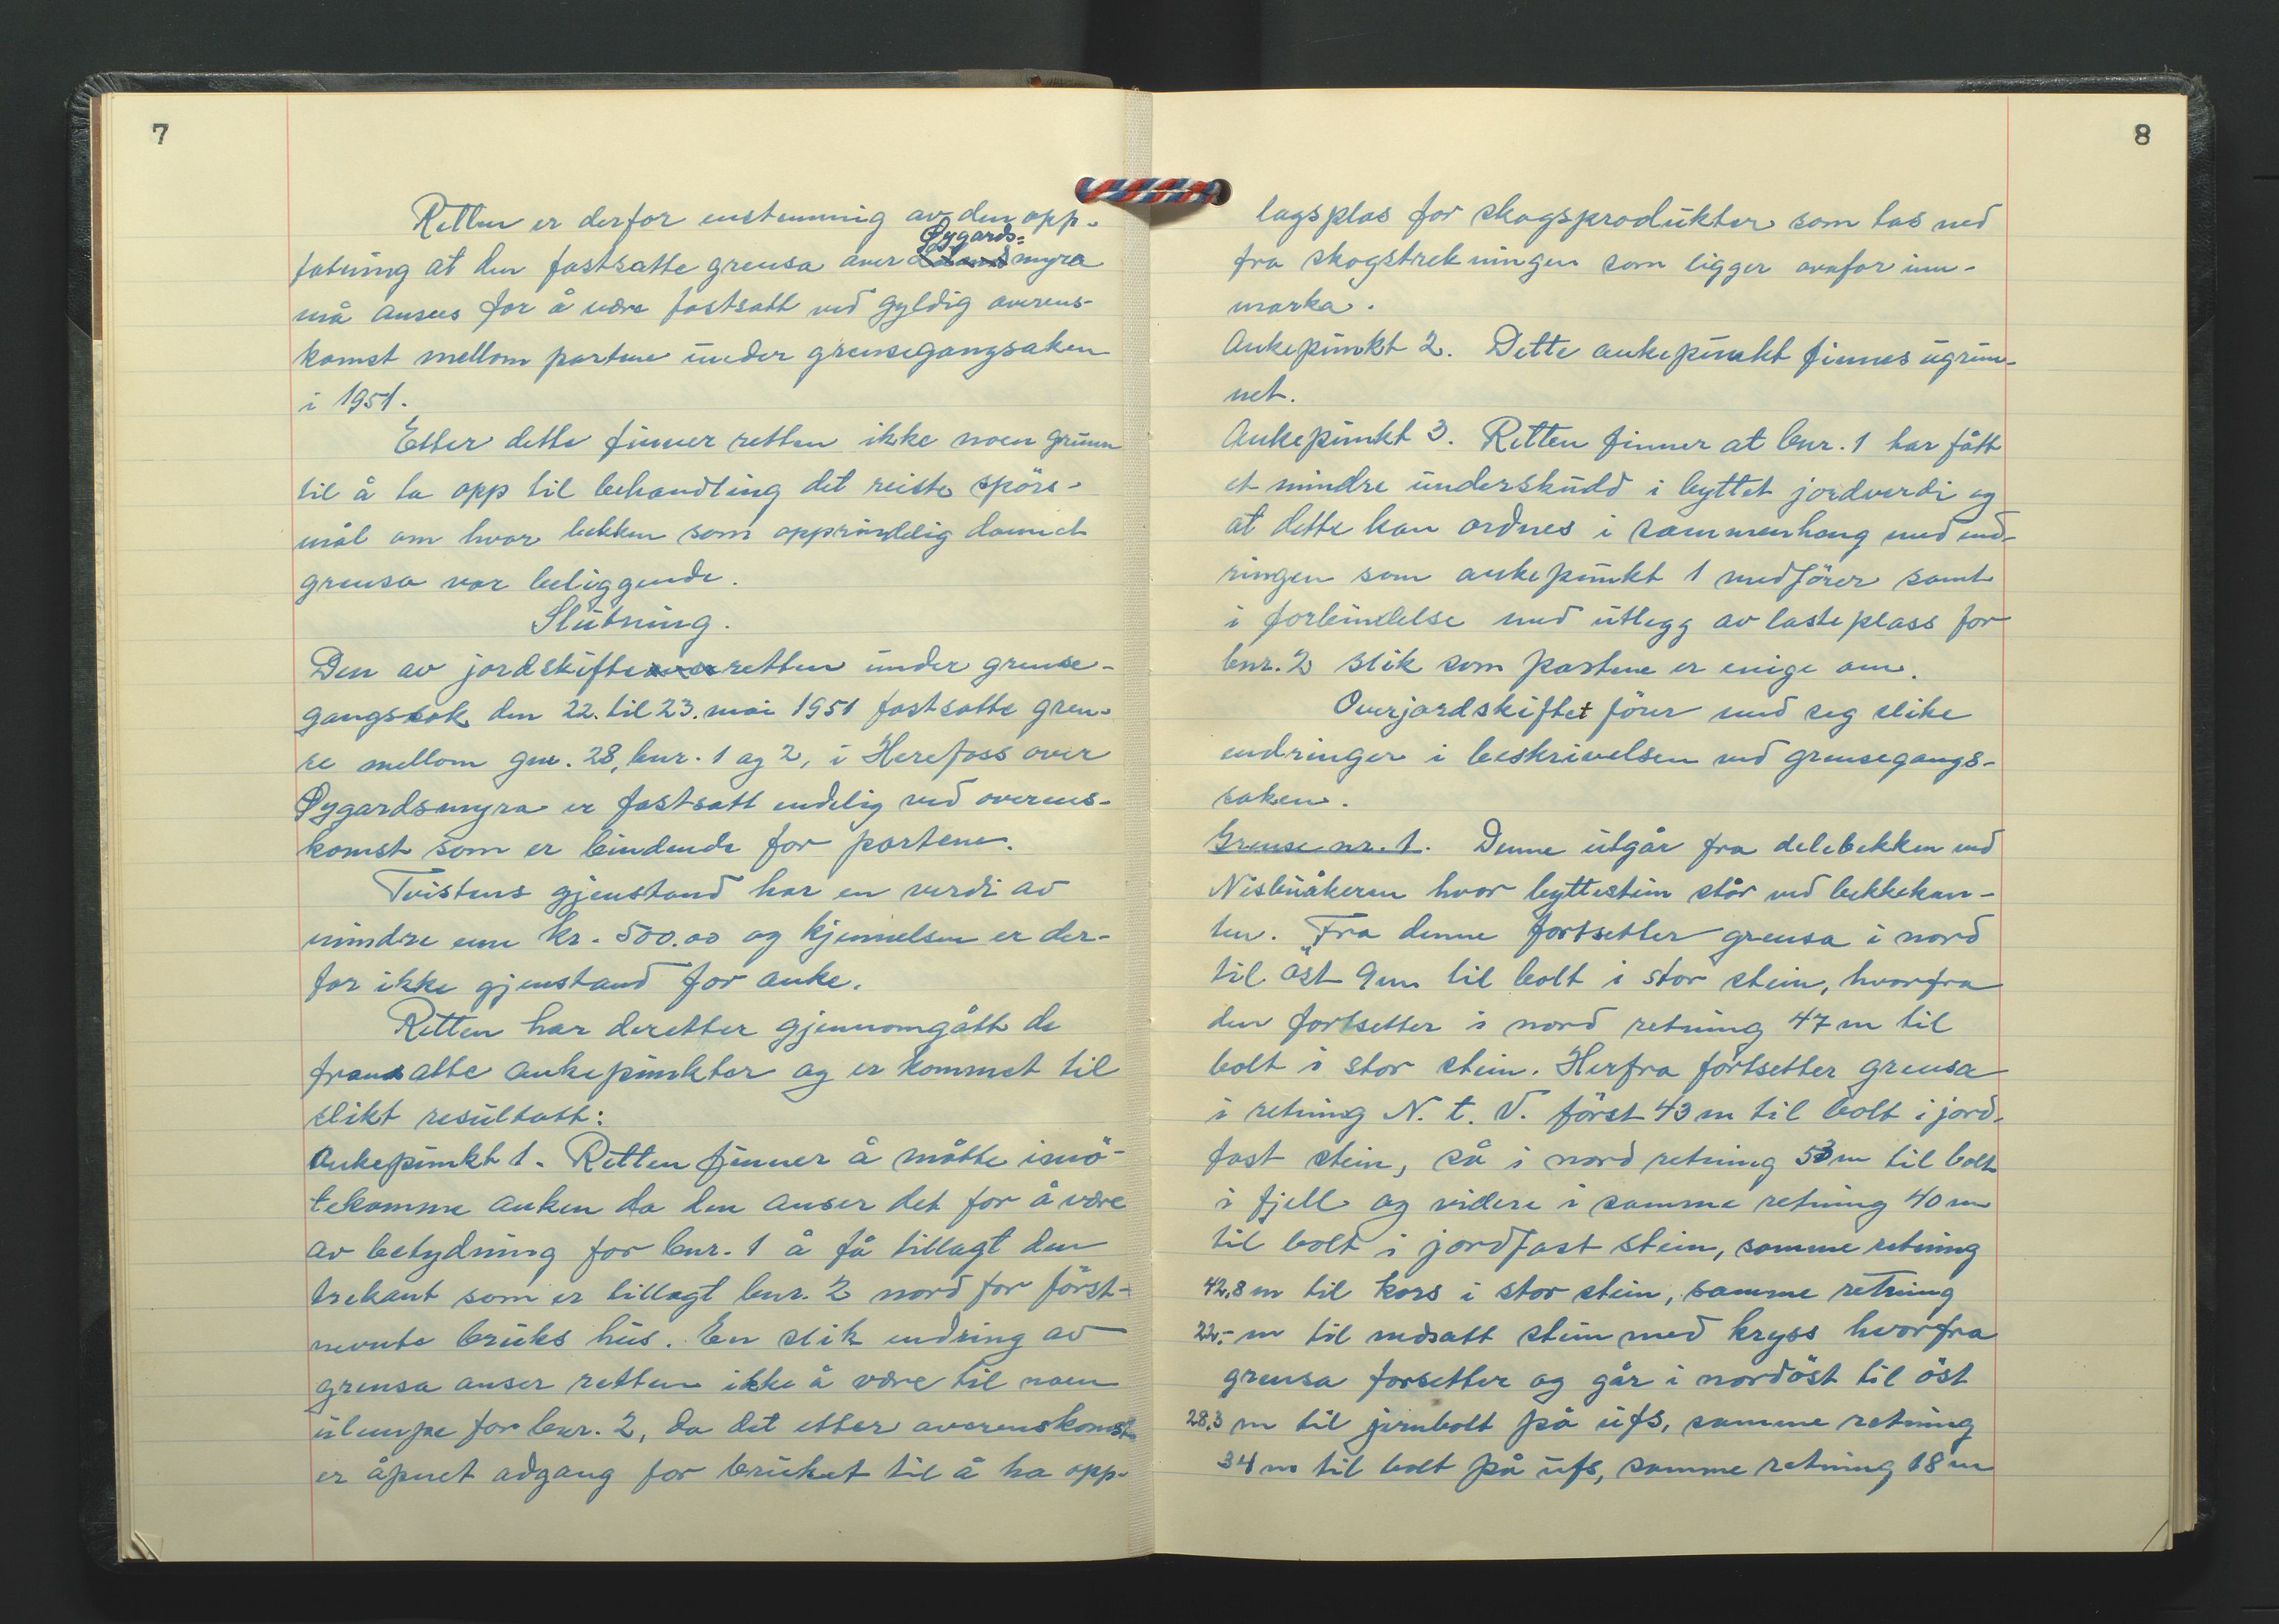 7
Retten er derfor enstemmig av den opp-
fatning at den fastsatte grensa over Øygards-
myra
må ansees for å være fastsatt ved gyldig overens-
komst mellom partene under grensegangsaken
i 1951.
Etter dette finner retten ikke noen grunn
til å ta opp til behandling det reiste spörs-
mål om hvor bekken som opprindelig dannet
grensa var beliggende.
Slutning.
Den av jordskifteretten under grense-
gangssak den 22. til 23. mai 1951 fastsatte gren-
se mellom gnr. 28, bnr. 1 og 2, i Herefoss over
Øygardsmyra er fastsatt endelig ved overens-
komst som er bindende for partene.
Tvistens gjenstand har en verdi av
mindre enn kr. 500.00 og kjennelsen er der-
for ikke gjenstand for anke.
Retten har deretter gjennomgått de
framsatte ankepunkter og er kommet til
slikt resultatt:
Ankepunkt 1. Retten finner å måtte imö-
tekomme anken da den anser det for å være
av betydning for bnr. 1 å få tillagt den
trekant som er tillagt bnr. 2 nord for först-
nevnte bruks hus. En slik endring av
grensa anser retten ikke å være til noen
ulempe for bnr. 2, da det etter overenskomst
er åpnet adgang for bruket til å ha opp-
8
lagsplas for skogsprodukter som tas ned
fra skogstrekningen som ligger ovafor inn-
marka.
Ankepunkt 2. Dette ankepunkt finnes ugrun-
net.
Ankepunkt 3. Retten finner at bnr. 1 har fått
et mindre underskudd i byttet jordverdi og
at dette kan ordnes i sammenheng med end-
ringen som ankepunkt 1 medförer samt
i forbindelse med utlegg av lasteplass for
bnr. 2 slik som partene er enige om.
Overjordskiftet förer med seg slike
endringer i beskrivelsen ved grensegangs-
saken.
Grense nr. 1. Denne utgår fra delebekken ved
Nisbuåkeren hvor byttestein står ved bekkekan-
ten. Fra denne fortsetter grensa i nord
til öst 9 m til bolt i stor stein, hvorfra
den fortsetter i nord retning 47 m til
bolt i stor stein. Herfra fortsetter grensa
i retning N. t. V. först 43 m til bolt i jord-
fast stein, så i nord retning 53 m til bolt
i fjell og videre i samme retning 40 m
til bolt i jordfast stein, samme retning
42,8 m til kors i stor stein, samme retning
22,- m til nedsatt stein med kryss hvorfra
grensa forsetter og går i nordöst til öst
28,3 m til jernbolt på ufs, samme retning
34 m til bolt på ufs, samme retning 18 m